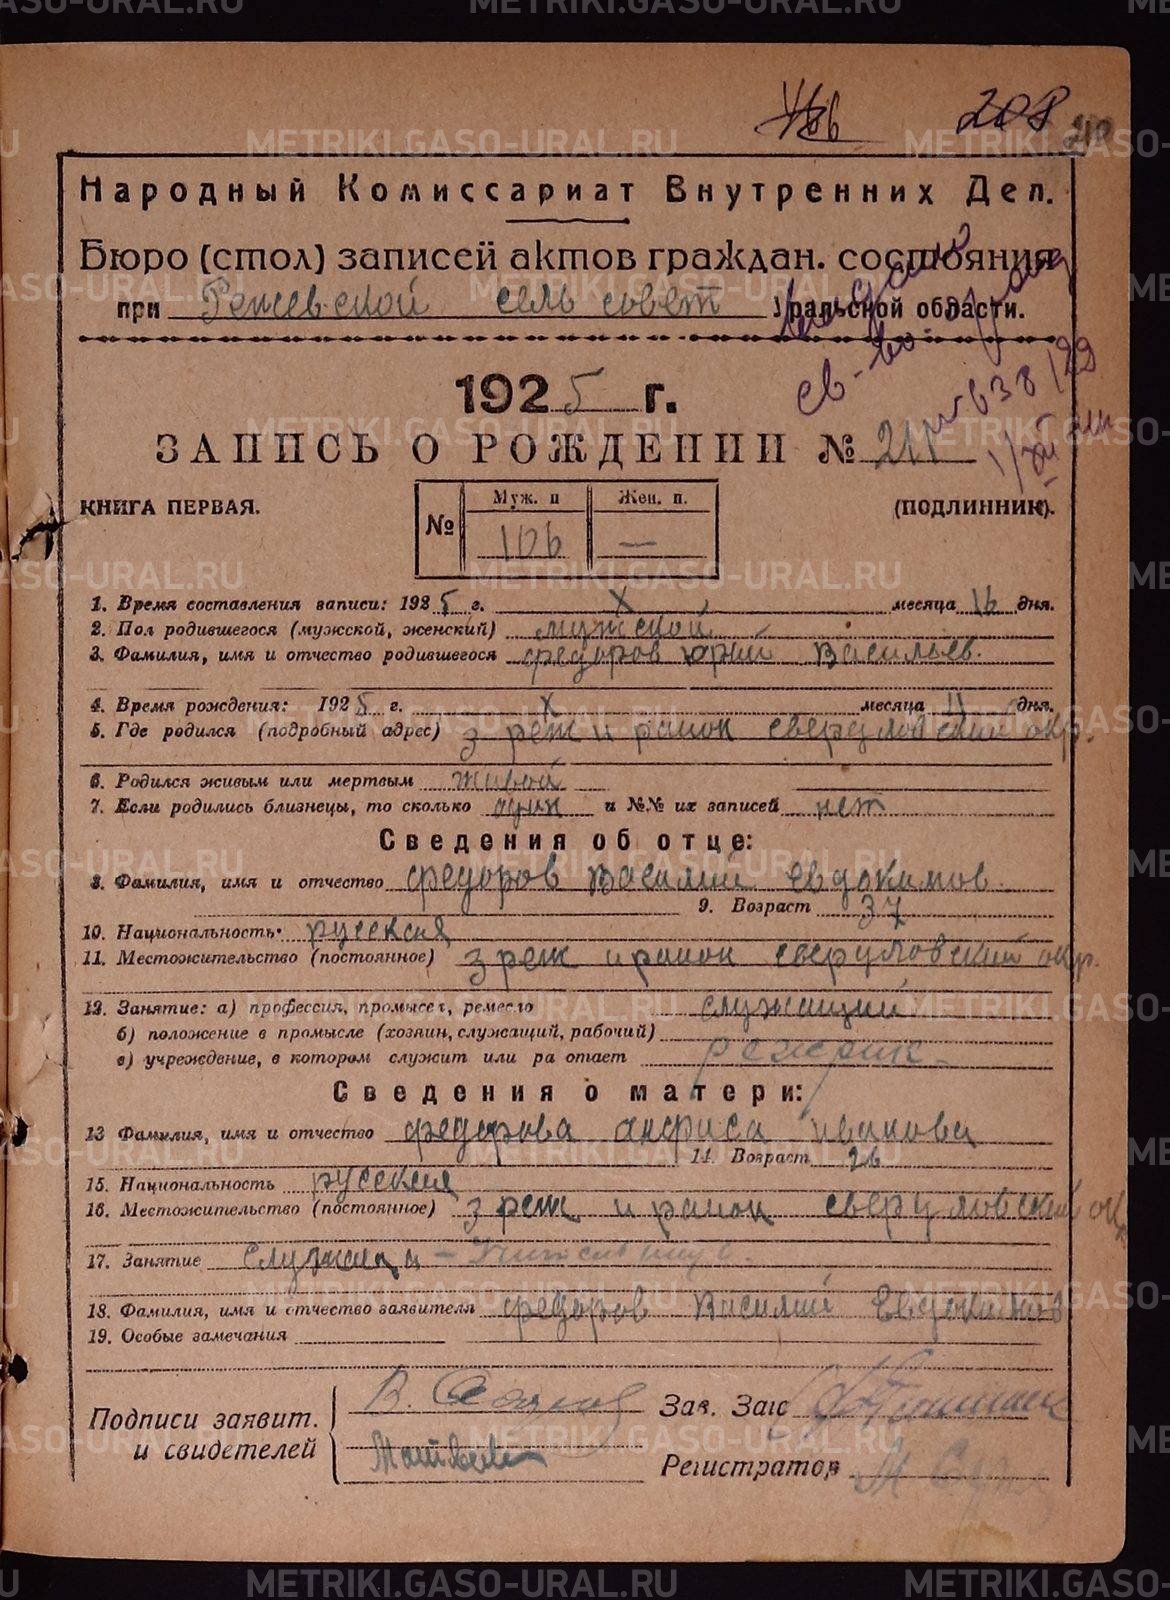 208
Народный Комиссариат Внутренних Дел.
Бюро (стол) записей актов граждан. состояния
при Режевской сель совет Уральской области.
Выдано
св-во
638/29
1925 г.
ЗАПИСЬ О РОЖДЕНИИ № 211
КНИГА ПЕРВАЯ.
(ПОДЛИННИК).
№ Муж. п Жен. п.
106 —
1. Время составления записи: 1925 г. X месяца 16 дня.
2. Пол родившегося (мужской, женский) мужской
3. Фамилия, имя и отчество родившегося федоров юрий Васильев.
4. Время рождения: 1925 г. X месяца 11 дня.
5. Где родился (подробный адрес) з реж и район свердловский окр.
6. Родился живым или мертвым живой
7. Если родились близнецы, то сколько один и №№ их записей нет
Сведения об отце:
8. Фамилия, имя и отчество федоров василий Евдокимов.
9. Возраст 37
10. Национальность русския
11. Местожительство (постоянное) з реж и район свердловский окр.
12. Занятие: а) профессия, промысел, ремесло служащий
б) положение в промысле (хозяин, служащий, рабочий)
в) учреждение, в котором служит или ра отает
Сведения о матери:
13 Фамилия, имя и отчество федорова анфиса иванова
14. Возраст 26
15. Национальность русския
16. Местожительство (постоянное) з реж и район свердловский окр
17. Занятие служаща –
18. Фамилия, имя и отчество заявителя федоров василий Евдокимов
19. Особые замечания
Подписи заявит. и свидетелей
Зав. Загс
Регистратор
METRIKI.GASO-URAL.RU